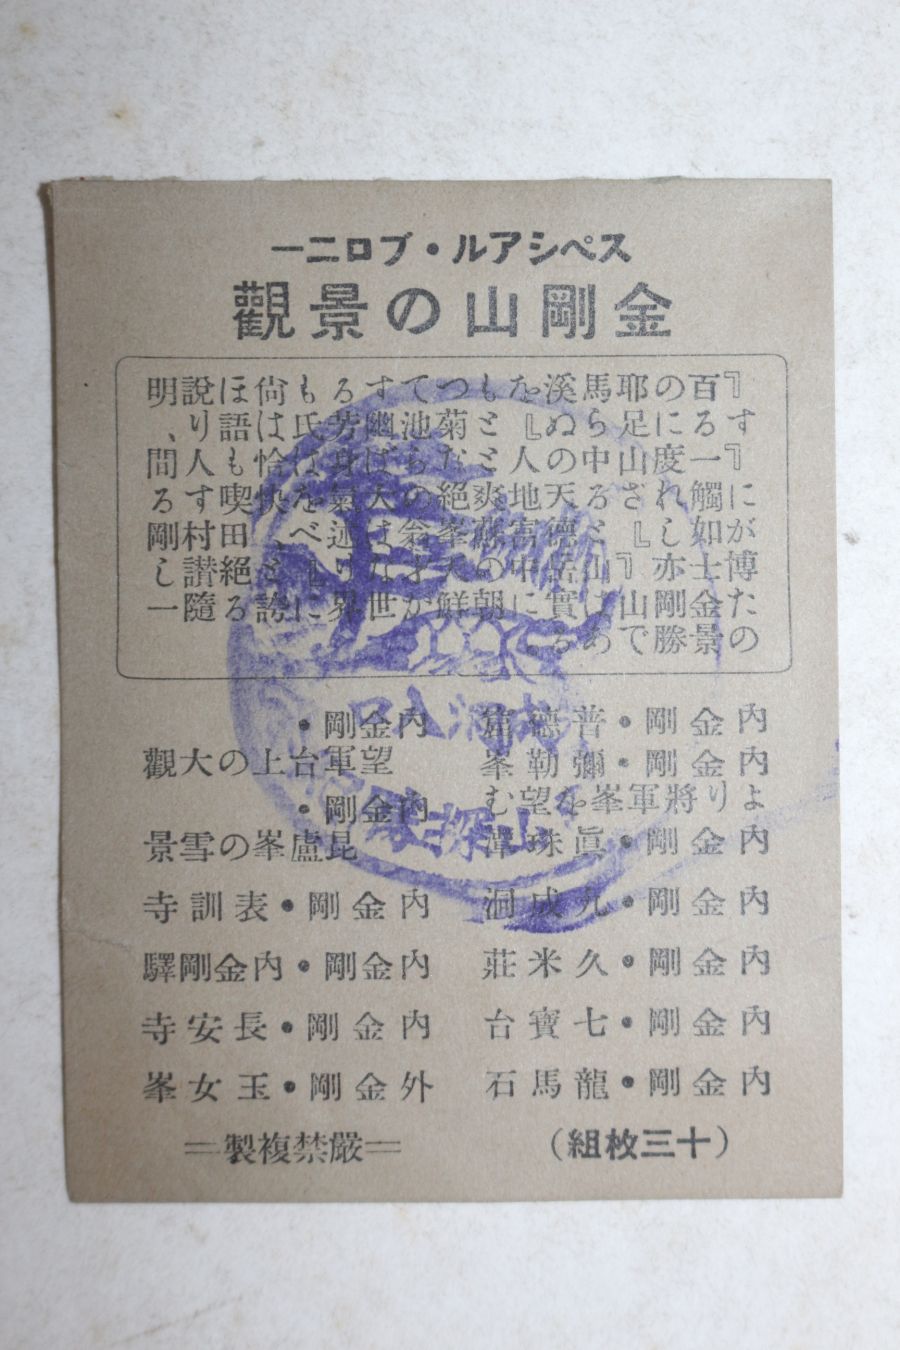 スペシアル・ブロニー
金剛山の景觀
『百の耶馬溪をもつてするも尙ほ說明
するに足らぬ』と菊池幽芳氏は語り、
『一度山中の人とだらば身は恰も人間
に觸れざる天地爽絕の大氣を快喫する
が如し』と德富蘇峯翁は述べ、田村剛
博士亦『山岳中の天才なり』と絕讃し
た金剛山は實に朝鮮が世界に誇る隨一
の景勝である。
內金剛・普德窟
內金剛・彌勒峯
より將軍峯を望む
內金剛・眞珠潭
內金剛・九成洞
內金剛・久米莊
內金剛・七寶台
內金剛・龍馬石
內金剛・
望軍台上の大觀
內金剛・
昆盧峯の雪景
內金剛・表訓寺
內金剛・內金剛驛
內金剛・長安寺
外金剛・玉女峯
(十三枚組)
=嚴禁複製=
探